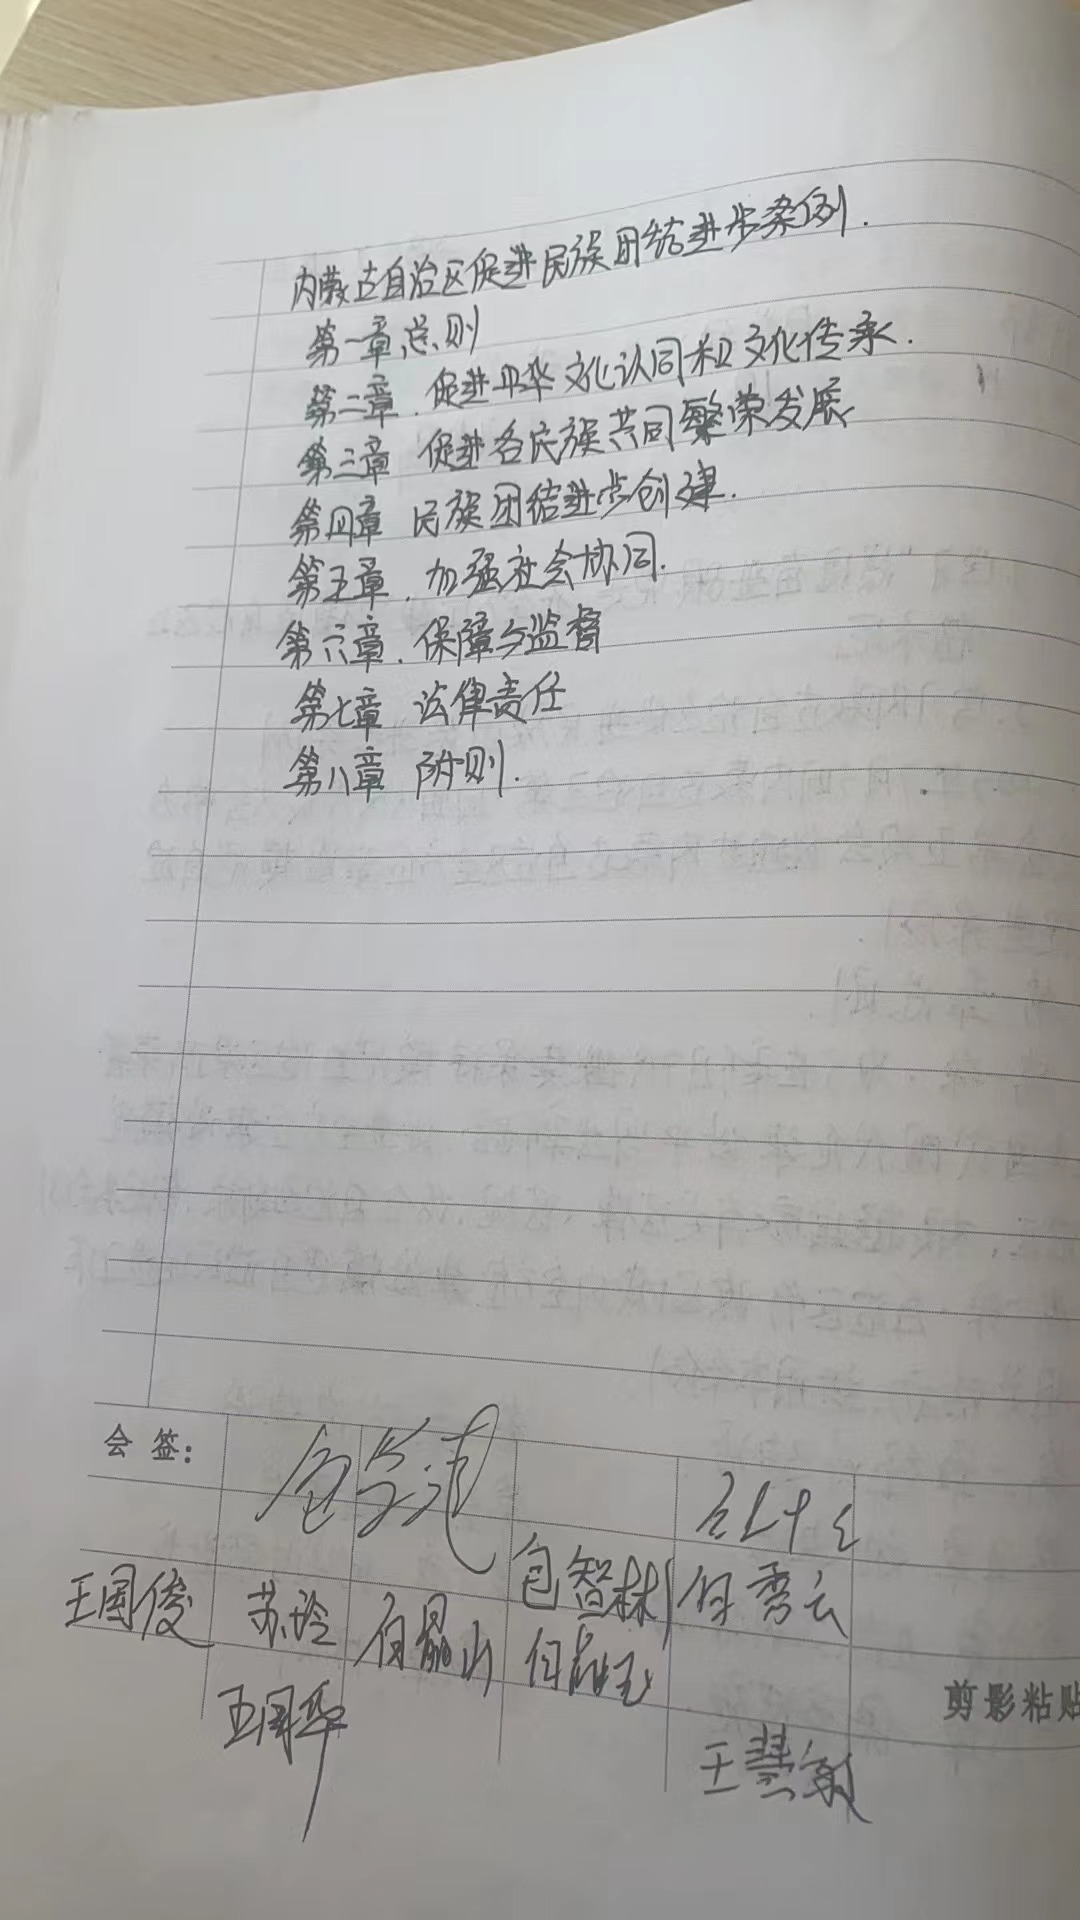 内蒙古自治区促进民族团结进步条例.
第一章总则
第二章.促进中华文化认同和文化传承.
第三章 促进各民族共同繁荣发展
第四章 民族团结进步创建.
第五章.加强社会协同.
第六章.保障与监督
第七章 法律责任
第八章 附则.
会签:
王国俊 苏玲 包智林 何秀云
王国华 王慧敏
剪影粘贴